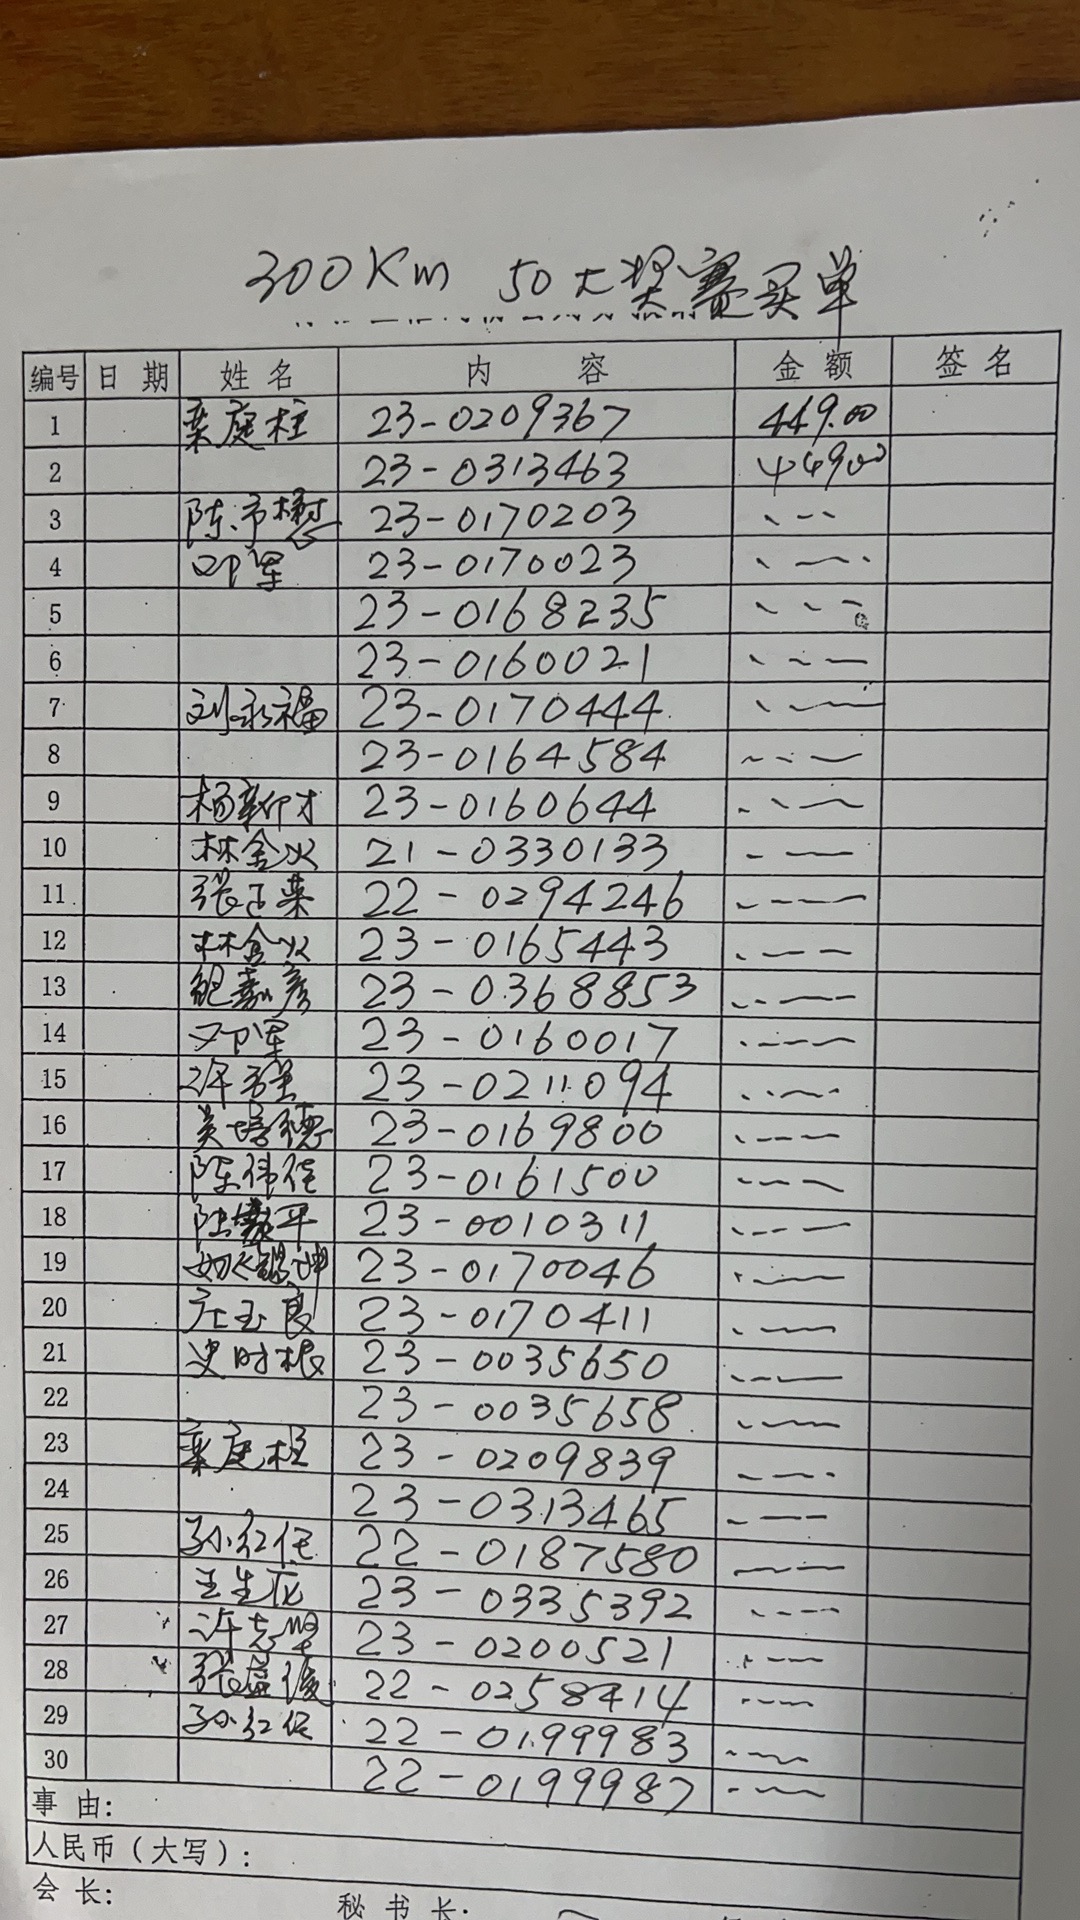 300Km 50大奖赛买单
编号 日期 姓名 内容 金额 签名
1 栾庭柱 23-0209367 449.00
2 23-0313463 449.00
3 23-0170203
4 邓军 23-0170023
5 23-0168235
6 23-0160021
7 刘永福 23-0170444
8 23-0164584
9 23-0160644
10 林金火 21-0330133
11 张正荣 22-0294246
12 林金火 23-0165443
13 鲍嘉彦 23-0368853
14 邓军 23-0160017
15 许强 23-0211094
16 吴培德 23-0169800
17 陈伟佳 23-0161500
18 23-0010311
19 23-0170046
20 庄玉良 23-0170411
21 史时根 23-0035650
22 23-0035658
23 栾庭柱 23-0209839
24 23-0313465
25 孙红任 22-0187580
26 23-0335392
27 23-0200521
28 22-0258414
29 孙红任 22-0199983
30 22-0199987
事由:
人民币(大写):
会长: 秘书长: